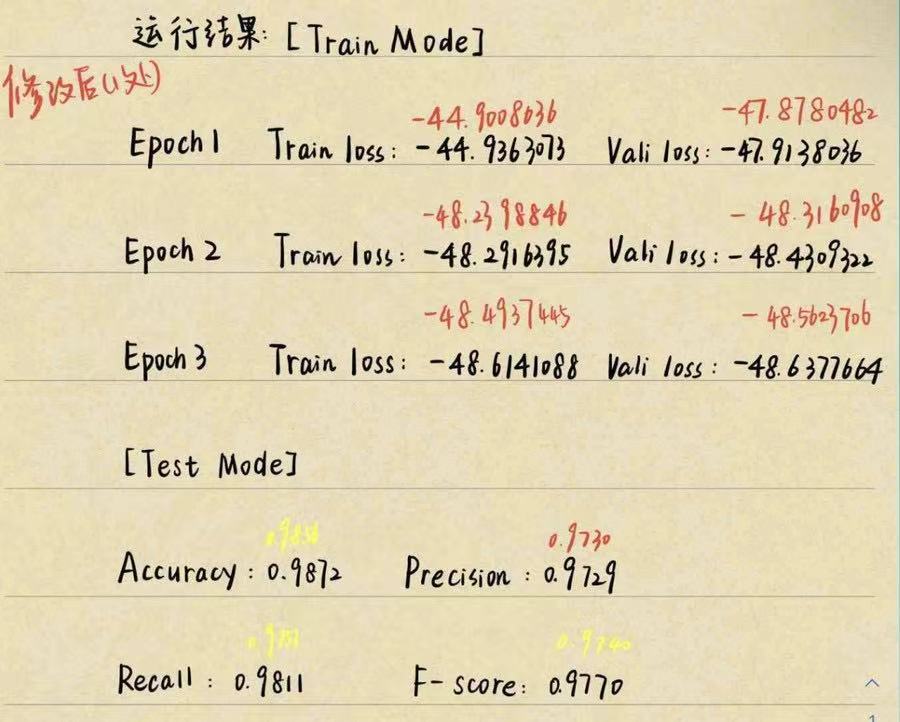 运行结果: [Train Mode]
修改后(1处)
-44.9008036 -47.8780482
Epoch 1 Train loss: -44.9363073 Vali loss: -47.9138036
-48.2398846 -48.3160908
Epoch 2 Train loss: -48.2916395 Vali loss: -48.4309322
-48.4937445 -48.5623706
Epoch 3 Train loss: -48.6141088 Vali loss: -48.6377664
[Test Mode]
0.9730
Accuracy: 0.9872 Precision: 0.9729
0.9740
Recall: 0.9811 F-score: 0.9770
1